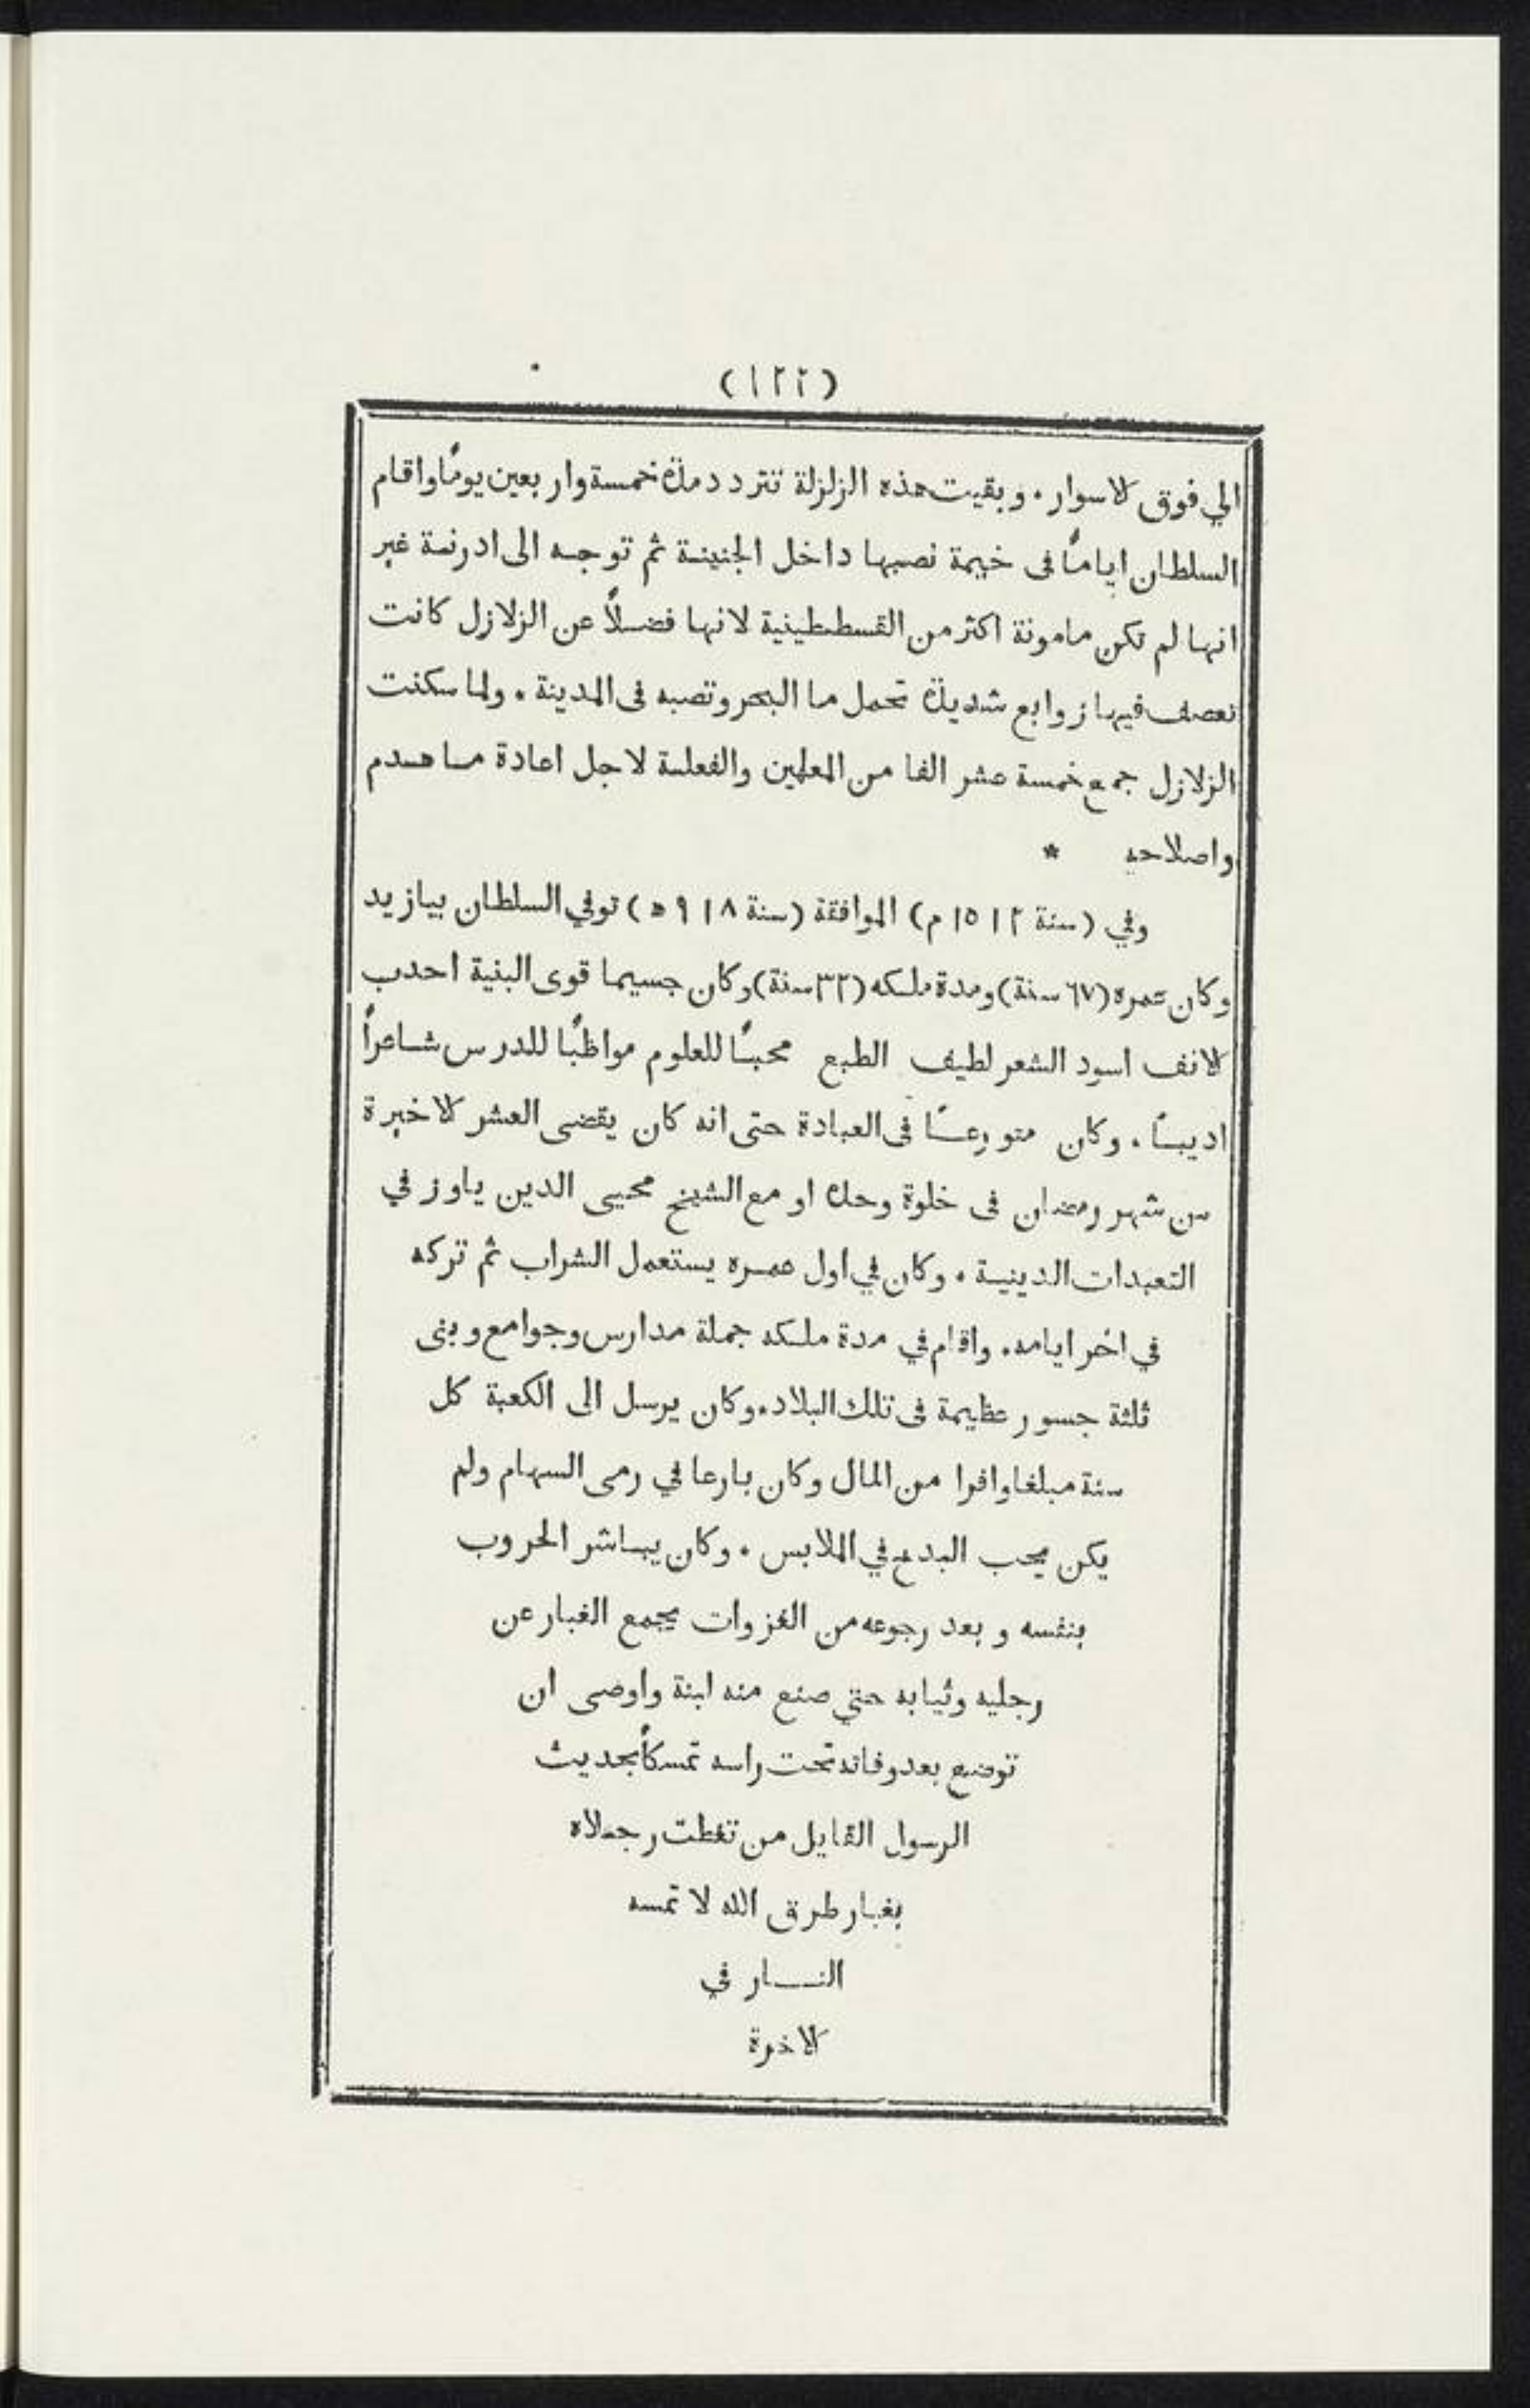 (١٢٢)
الي فوق الاسوار . وبقيت هذه الزلزلة تتردد مدة خمسة واربعين يومًا واقام
السلطان ايامًا فى خيمة نصبها داخل الجنينة ثم توجه الى ادرنة غير
انها لم تكن مامونة اكثر من القسطنطينية لانها فضلًا عن الزلازل كانت
تعصف فيها زوابع شديدة تحمل ما البحر وتصبه فى المدينة . ولما سكنت
الزلازل جمع خمسة عشر الفا من المعلمين والفعلة لاجل اعادة ما هدم
واصلاحه *
وفي (سنة ١٥١٢ م) الموافقة (سنة ٩١٨ ه) توفي السلطان بيازيد
وكان عمره (٦٧ سنة) ومدة ملكه (٣٢ سنة) وكان جسيما قوى البنية احدب
الانف اسود الشعر لطيف الطبع محبًا للعلوم مواظبًا للدرس شاعراً
اديبًا . وكان متورعًا فى العبادة حتى انه كان يقضى العشر الاخيرة
من شهر رمضان فى خلوة وحده او مع الشيخ محيى الدين ياوز في
التعبدات الدينية . وكان في اول عمره يستعمل الشراب ثم تركه
في اخر ايامه. واقام في مدة ملكه جملة مدارس وجوامع وبنى
ثلثة جسور عظيمة فى تلك البلاد. وكان يرسل الى الكعبة كل
سنة مبلغا وافرا من المال وكان بارعا في رمى السهام ولم
يكن يحب البدع في الملابس . وكان يباشر الحروب
بنفسه و بعد رجوعه من الغزوات يجمع الغبار عن
رجليه وثيابه حتي صنع منه ابنة واوصى ان
توضع بعد وفاته تحت راسه تمسكاً بحديث
الرسول القايل من تغطت رجلاه
بغبار طرق الله لا تمسه
النار في
الاخرة